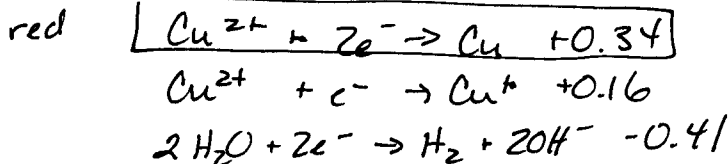 red Cu²⁺ + 2e⁻ → Cu +0.34
Cu²⁺ + e⁻ → Cu⁺ +0.16
2 H₂O + 2e⁻ → H₂ + 2OH⁻ -0.41